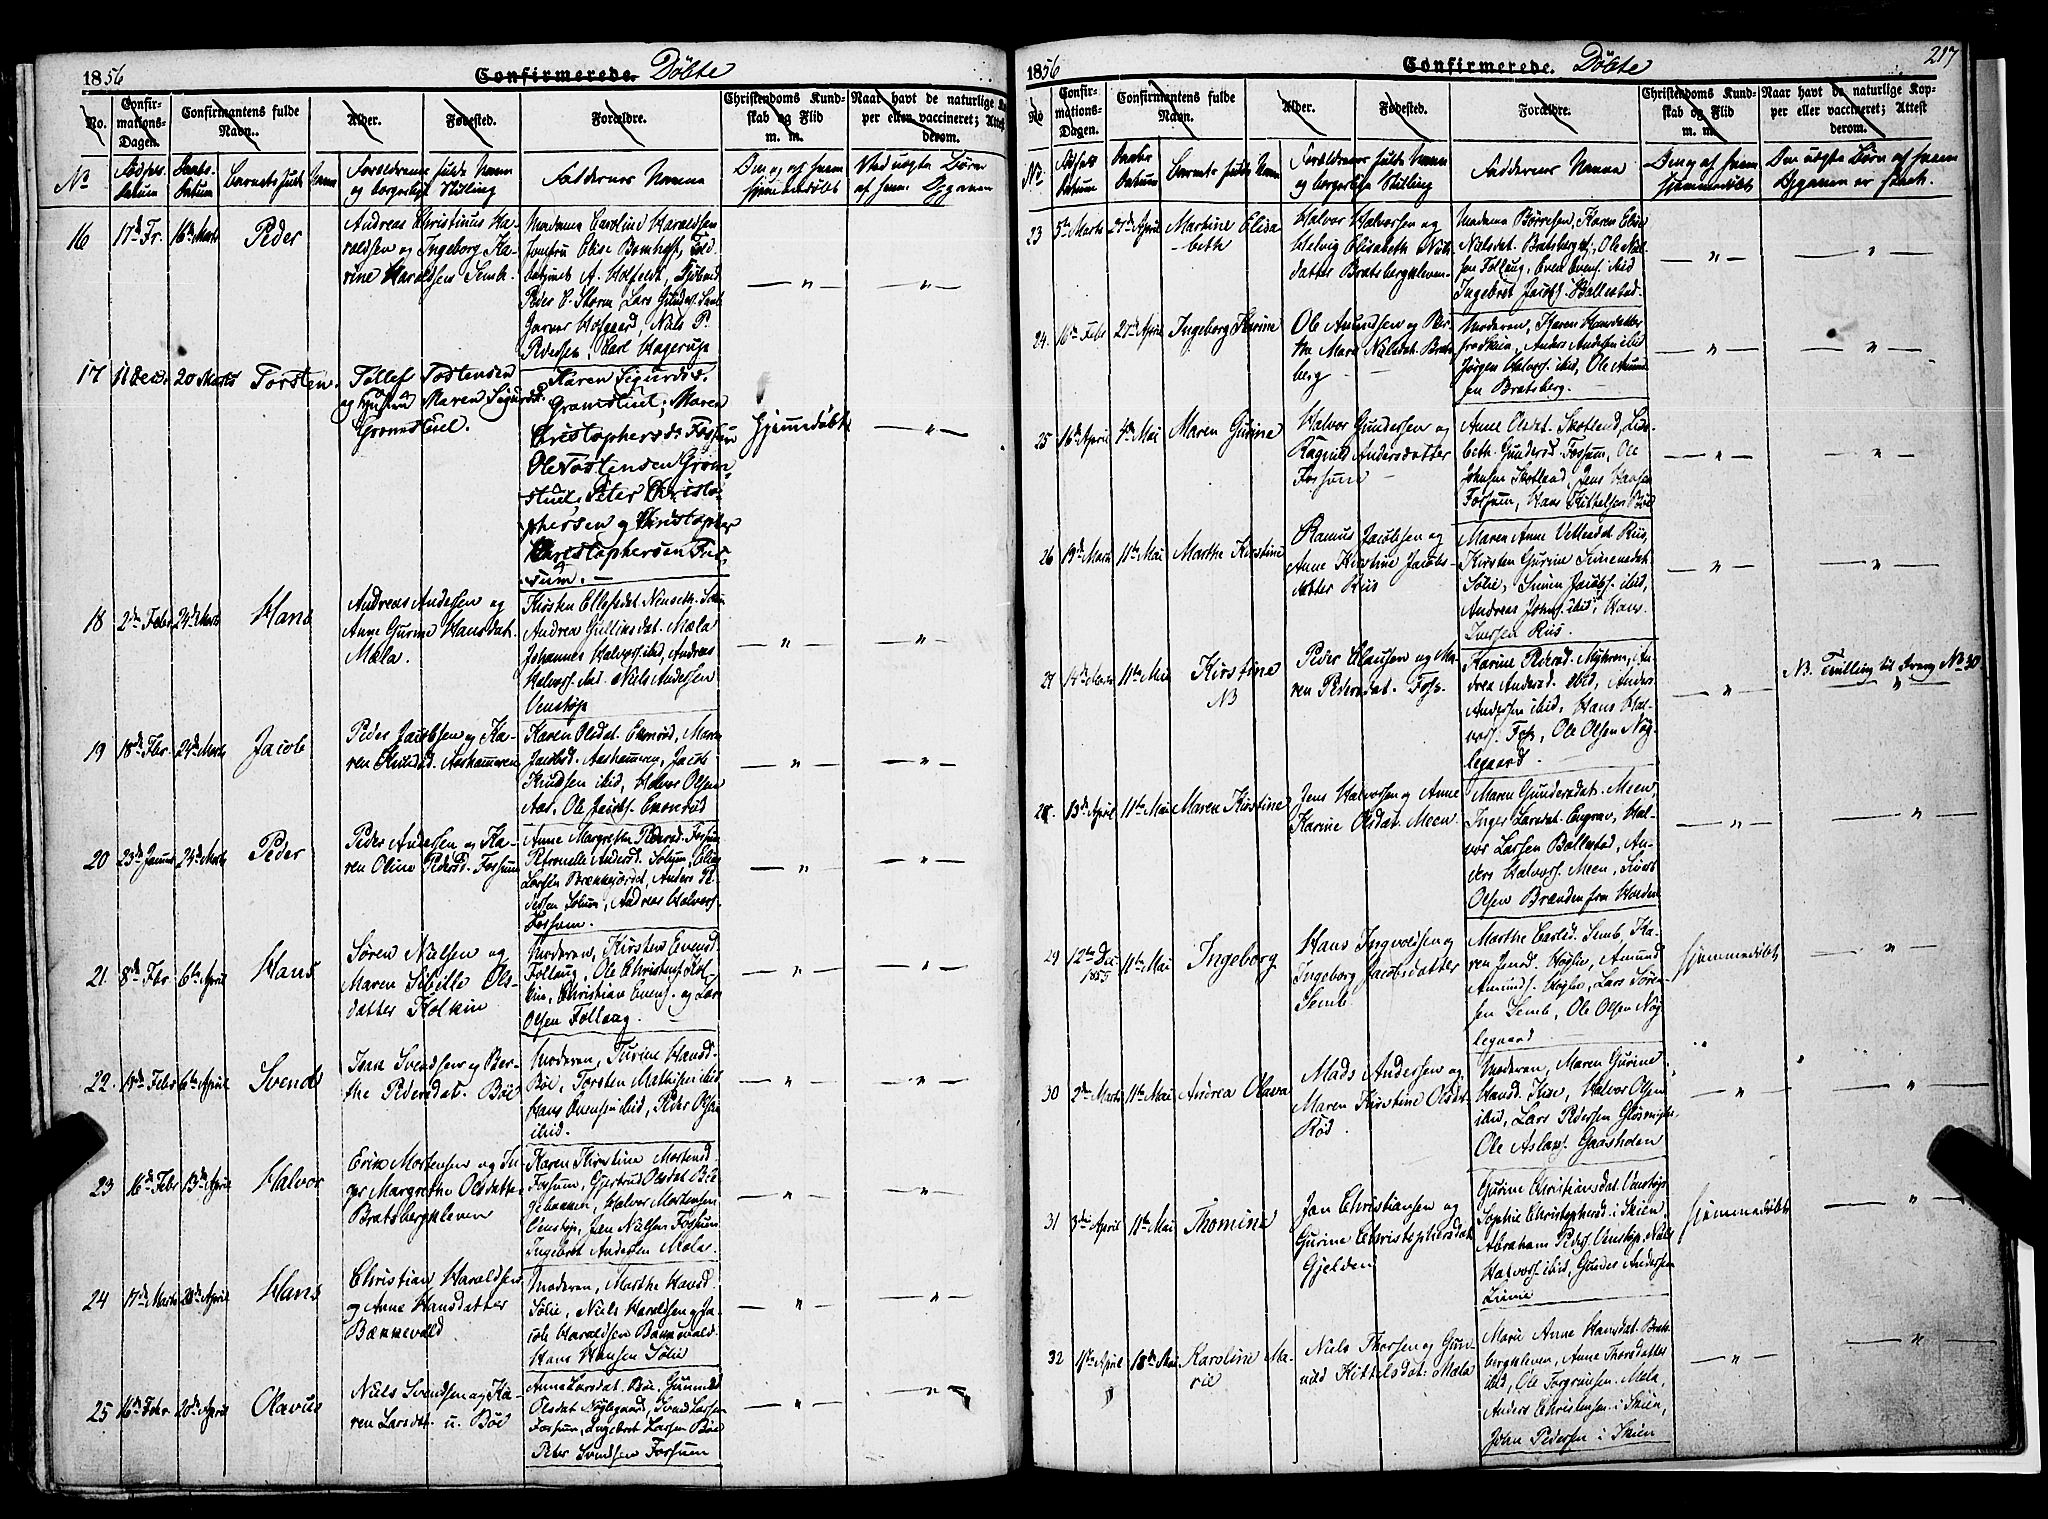 1856
Confirmerede. Döbte
No.
Confir-
mations-
Dagen.
Confirmantens fulde
Navn.
Alder.
Fødested.
Forældre.
Christendoms Kund-
skab og Flid
m. m.
Naar havt de naturlige
per eller vaccineret; Attest
derom.
No
Fødsels
datum
Daabs-
datum
Barnets fulde Navn
Forældrenes fulde Navn
og borgerlige Stilling
Faddernes Navne
16
17de Fr.
16de Marts
Peder
Andreas Christinus Ha-
raldsen og Ingeborg Ka-
rine Haraldsen Semb.
Madame Caroline Haraldsen
Jomfru Elise
Peder C. Storm
Hofgaard, Niels P.
Pedersen, Carl Hagerup
17
11 Dec.
20 Marts
Torsten.
Tollef Tostensen
og Hustru Maren Sigurdsd.
Gromstuel.
Karen Sigurdsd.
Gromstuel, Maren
Christophersd. Fossum
Ole Tostensen Grom-
stuel, Peter Christo-
phersen og Christopher
Christophersen Fos-
sum.
Hjemmedöbt
18
2den Febr
24de Marts
Hans
Andreas Andersen og
Anne Gurine Hansdat.
Mæla.
Kirsten Ellefsdat.
Andrea Gullıksdat. Mæla
Johannes Halvors. ibid, Andreas
Halvors. Aas. Niels Andersen
Venstöp
19
18de Fbr.
24de Marts
Jacob
Peder Jacobsen og Ka-
ren Aashammeren
Karen Olsdat. Enonrød, Maren
Jacobsd. Aashammeren, Jacob
Knudsen ibid, Halvor Olsen
Aas. Ole Jacobs. Enonrød
20
23de Januar
24de Marts
Peder
Peder Andersen og Ka-
ren Oline Pedersd. Fossum
Anne Margrethe Pedersd. Fossum
Petronelle Andersd. Solum, Elias
Larsen Brekkejordet, Anders Pe-
dersen Solum, Andreas Halvors.
Fossum.
21.
8de Fbr.
6te April
Hans
Sören Nielsen og
Maren Sibille Ols-
datter Kolkin
Moderen, Kirsten Evensd.
Follaug, Ole Christens. Kol-
kin, Christian Evens. og Lars
Olsen Follaug
22.
19de Febr
6te April
Svend
Svendsen og Ber-
the Pedersdat. Böe
Moderen, Turine Hansd.
Böe, Torsten Mathisen ibid
Hans Evensen ibid, Peder Olsen
ibid.
23
16de Febr
13de April
Halvor
Erik Mortensen og In-
ger Margrethe Olsdatter
Bratsbergkleven
Karen Kirstine Mortensd.
Fossum, Gjertrud Olsdat Böe
Halvor Mortensen
Venstöp, Jens Nielsen Fossum
Ingebret Andersen Mæla.
24
17de Marts
20de April
Hans
Christian Haraldsen
og Anne Hansdatter
Bannevald
Moderen, Marthe Hansd.
Sölie, Niels Haraldsen og Ja-
cob Haraldsen Bannevald.
Hans Hansen Sölie
25
16de Febr.
20de April
Olavus
Niels Svendsen og Ka-
ren Larsdat. u. Böe
Anne Larsdat. Böe, Gunnild
Olsdat Nöglegaard, Svend Larsen
Fossum, Ingebret Larsen Böe
Peter Svendsen Fossum
1856
Confirmerede. Döbte
217
No
Confir-
mations-
Dagen.
Confirmantens fulde
Navn.
Alder.
Fødested.
Forældre.
Christendoms Kund-
skab og Flid
m. m.
Naar havt de naturlige Kop-
per eller vaccineret; Attest
derom.
No.
Fødsels
datum
Daabs
datum
Barnets fulde Navn
Forældrenes fulde Navne
og borgerlige Stilling
Faddernes Navne
23
5te Marts
27de April
Martine Elisa-
beth
Halvor Halvorsen og
Helvig Elisabeth Niels-
datter Bratsbergkleven
Madame Börresen, Karen Elise
Nielsdat. Bratsbergkl., Ole Niel-
sen Follaug, Even Evens. ibid
Ingebret Jacobs. Ballestad.
24.
16de Febr
27de April
Ingeborg Karine
Ole Amundsen og Ber-
the Marie Nielsdat. Brats-
berg
Moderen, Karen Hansdatter
fra Skien, Anders Andersen ibid
Jörgen Halvors. ibid, Ole Amund-
sen Bratsberg.
25
16de April
4de Mai
Maren Gurine
Halvor Gundersen og
Ragnild Andersdatter
Fossum
Anne Olsdat. Skotland, Lis-
beth Gundersd. Fossum, Ole
Johnsen Skotland, Jens Hansen
Fossum, Hans Kittelsen Böe
26
19de Marts
11te Mai
Marthe Kirstine
Rasmus Jacobsen og
Anne Kirstine Jacobs-
datter Riis
Maren Anne Riis,
Kirsten Gurine Simensdat.
Sölie, Simen Jacobs. ibid,
Andreas Johns. ibid, Hans
Iversen Riis.
27
14de Marts
11te Mai
Kirstine
NB
Peder Clausen og Ma-
ren Pedersdat. Foss.
Karine Pedersd. Myhren, An-
drea Andersd. ibid, Anders
Andersen ibid, Hans Hal-
vors. Foss, Ole Olsen Nög-
legaard
NB. Tvilling til Dreng No 30
28.
13de April
11te Mai
Maren Kirstine
Jens Halvorsen og Anne
Karine Olsdat. Meen
Maren Gundersdat. Meen,
Inger Larsdat. Engrav, Hal-
vor Larsen Ballestad, An-
ders Halvors. Meen, Sivert
Olsen Brænden fra Heeden
29
12te Dec
1855
11te Mai
Ingeborg
Hans Ingvoldsen og
Ingeborg Jacobsdatter
Semb
Marthe Carlsd. Semb, Ka-
ren Jensd. Höglie, Amund
Amunds. Höglie, Lars Sören-
sen Semb, Ole Olsen Nög-
legaard
hjemmedöbt
30
2den Marts
11te Mai
Andrea Olava
Mads Andersen og
Maren Kirstine Olsdat.
Röd
Moderen, Maren Gurine
Hansd. Kise, Halvor Olsen
ibid, Lars Pedersen Glosmyhr,
Ole Aslaks. Gaasholen
31
3die April
11te Mai
Thomine
Jon Christiansen og
Gurine Christophersdat.
Gjelden
Gurine Christiansdat. Venstöp,
Sophie Christophersd. i Skien,
Abraham Peders. Venstöp, Niels
Halvors. ibid, Gunder Andersen
Limie
hjemmedöbt
32
1ste April
18de Mai
Karoline Ma-
rie
Niels Thorsen og Gun-
nild Kittelsdat. Mæla
Marie Anne Hansdat. Brats-
bergkleven, Anne Thorsdatter
ibid, Ole Torgrimsen Mæla,
Anders Christensen i Skien,
John Pedersen i Skien